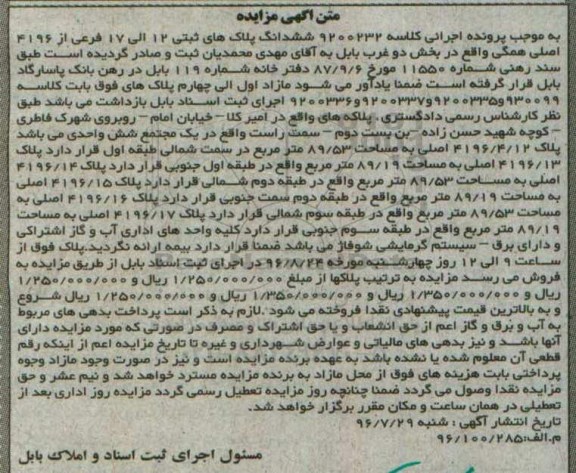 متن آگهی مزایده
به موجب پرونده اجرائی کلاسه ۹۲۰۰۲۳۲ ششدانگ پلاک های ثبتی ۱۲ الی ۱۷ فرعی از ۴۱۹۶
اصلی همگی واقع در بخش دو غرب بابل به آقای مهدی محمدیان ثبت و صادر گردیده است طبق
سند رهنی شماره ۱۱۵۵۰ مورخ ۸۷/۹/۶ دفتر خانه شماره ۱۱۹ بابل در رهن بانک پاسارگاد
بابل قرار گرفته است ضمنا یادآور می شود مازاد اول الی چهارم پلاک های فوق بابت کلاسه
۹۳۰۰۹۹و۹۲۰۰۳۳۵و۹۲۰۰۳۳۷و۹۲۰۰۳۳۶ اجرای ثبت اسناد بابل بازداشت می باشد طبق
نظر کارشناس رسمی دادگستری، پلاکه های واقع در امیر کلا – خیابان امام – روبروی شهرک فاطری
– کوچه شهید حسن زاده –بن بست دوم – سمت راست واقع در یک مجتمع شش واحدی می باشد
پلاک ۴۱۹۶/۴/۱۲ اصلی به مساحت ۸۹/۵۳ متر مربع در سمت شمالی طبقه اول قرار دارد پلاک
۴۱۹۶/۱۳ اصلی به مساحت ۸۹/۱۹ متر مربع واقع در طبقه اول جنوبی قرار دارد پلاک ۴۱۹۶/۱۴
اصلی به مساحت ۸۹/۵۳ متر مربع واقع در طبقه دوم شمالی قرار دارد پلاک ۴۱۹۶/۱۵ اصلی
به مساحت ۸۹/۱۹ متر مربع واقع در طبقه دوم سمت جنوبی قرار دارد پلاک ۴۱۹۶/۱۶ اصلی به
مساحت ۸۹/۵۳ متر مربع واقع در طبقه سوم شمالی قرار دارد پلاک ۴۱۹۶/۱۷ اصلی به مساحت
۸۹/۱۹ متر مربع واقع در طبقه سوم جنوبی قرار دارد کلیه واحد های اداری آب و گاز اشتراکی
و دارای برق – سیستم گرمایشی شوفاژ می باشد ضمنا قرار دارد بیمه ارائه نگردید.پلاک فوق از
ساعت ۹ الی ۱۲ روز چهارشنبه مورخه ۹۶/۸/۲۴ در اجرای ثبت اسناد بابل از طریق مزایده به
فروش می رسد مزایده به ترتیب پلاکها از مبلغ ۱/۲۵۰/۰۰۰/۰۰۰ ریال و ۱/۲۵۰/۰۰۰/۰۰۰
ریال و ۱/۳۵۰/۰۰۰/۰۰۰ ریال و ۱/۳۵۰/۰۰۰/۰۰۰ ریال و ۱/۲۵۰/۰۰۰/۰۰۰ ریال شروع
و به بالاترین قیمت پیشنهادی نقدا فروخته می شود .لازم به ذکر است پرداخت بدهی های مربوط
به آب و برق و گاز اعم از حق انشعاب و یا حق اشتراک و مصرف در صورتی که مورد مزایده دارای
آنها باشد و نیز بدهی های مالیاتی و عوارض شهرداری و غیره تا تاریخ مزایده اعم از اینکه رقم
قطعی آن معلوم شده یا نشده باشد به عهده برنده مزایده است و نیز در صورت وجود مازاد وجوه
پرداختی بابت هزینه های فوق از محل مازاد به برنده مزایده مسترد خواهد شد و نیم عشر و حق
مزایده نقدا وصول می گردد ضمنا چنانچه روز مزایده تعطیل رسمی گردد مزایده روز اداری بعد از
تعطیلی در همان ساعت و مکان مقرر برگزار خواهد شد.
تاریخ انتشار آگهی : شنبه ۹۶/۷/۲۹
م.الف:۹۶/۱۰۰/۲۸۵
مسئول اجرای ثبت اسناد و املاک بابل